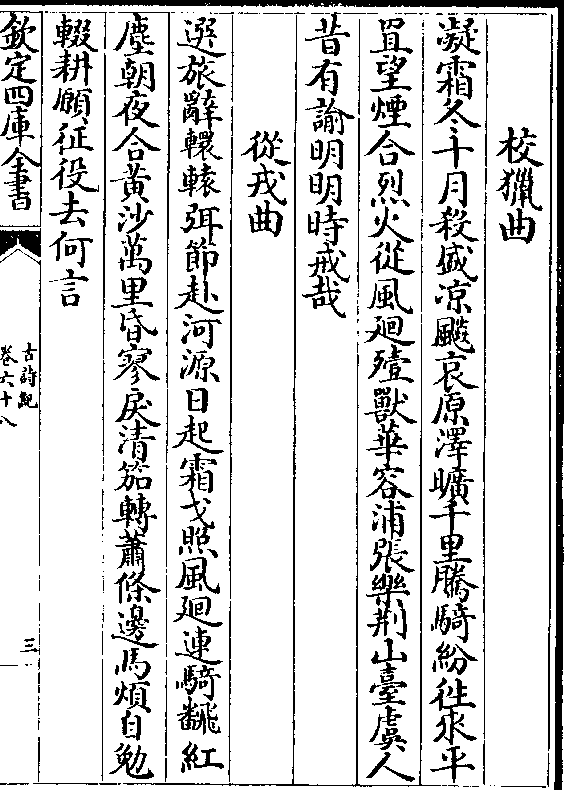 校獵曲
凝霜冬十月殺盛凉飈哀原澤曠千里騰騎紛徃來平
罝望煙合烈火從風廻殪獸華容浦張樂荆山臺虞人
昔有諭明明時戒哉
從戎曲
選旅辭轘轅弭節赴河源日起霜戈照風廻連騎翻紅
塵朝夜合黃沙萬里昏寥戾清笳轉蕭條邊馬煩自勉
輟耕願征役去何言
欽定四庫全書
古詩紀
卷六十八
三